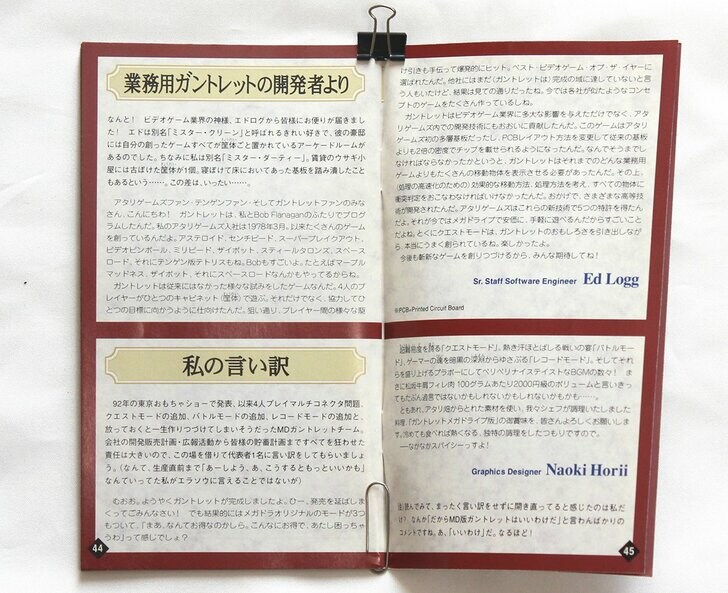 業務用ガントレットの開発者より
なんと! ビデオゲーム業界の神様、エドログから皆様にお便りが届きまし
た! エドは別名「ミスター・クリーン」と呼ばれるきれい好きで、彼の豪邸
には自分の創ったゲームすべてが筐体ごと置かれているアーケードルームが
あるのでした。ちなみに私は別名「ミスター・ダーティー」。賃貸のウサギ小
屋には古ぼけた筐体が1個。寝ぼけて床においてあった基板を踏み潰したこと
もあるという……。この差は、いったい……。
アタリゲームズファン・テンゲンファン・そしてガントレットファンのみな
さん、こんにちわ! ガントレットは、私とBob Flanaganのふたりでプログ
ラムしたんだ。私のアタリゲームズ入社は1978年3月。以来たくさんのゲーム
を創っているんだよ。アステロイド、センチピード、スーパーブレイクアウト、
ビデオピンボール、ミリピード、ザイボット、スティールタロンズ、スペースロ
ード、それにテンゲン版テトリスもね。Bobもすごいよ。たとえばマーブル
マッドネス、ザイボット、それにスペースロードなんかもやってるからね。
ガントレットは従来にはなかった様々な試みをしたゲームなんだ。4人のプ
レイヤーがひとつのキャビネット(筐体)で遊ぶ。それだけでなく、協力してひ
とつの目標に向かうように仕向けたんだ。狙い通り、プレイヤー間の様々な駆
け引きも手伝って爆発的にヒット。ベスト・ビデオゲーム・オブ・ザ・イヤーに
選ばれたんだ。他社にはまだ(ガントレットは)完成の域に達していないと言
う人もいたけど、結果は見ての通りだったね。今では各社が似たようなコンセ
プトのゲームをたくさん作っているしね。
ガントレットはビデオゲーム業界に多大な影響を与えただけでなく、アタ
リゲームズ内での開発技術にもおおいに貢献したんだ。このゲームはアタリゲ
ームズ初の多層基板だったし、PCBレイアウト方法を変更して従来の基板
よりも2倍の密度でチップを載せられるようになったんだ。なんでそうまでし
なければならなかったかというと、ガントレットはそれまでのどんな業務用
ゲームよりもたくさんの移動物体を表示させる必要があったんだ。その上、
(処理の高速化のための)効果的な移動方法、処理方法を考え、すべての物体に
衝突判断をおこなわなければいけなかったんだ。おかげで、さまざまな高等技
術が開発されたんだ。アタリゲームズはこれらの新技術で5つの特許を得たん
だよ。それが今ではメガドライブで安価に、手軽に遊べるんだからすごいこと
だよね。とくにクエストモードは、ガントレットのおもしろさを引き出しなが
ら、本当にうまく創られているね。楽しかったよ。
今後も斬新なゲームを創りつづけるから、みんな期待してね!
Sr. Staff Software Engineer Ed Logg
※PCB=Printed Circuit Board
私の言い訳
92年の東京おもちゃショーで発表、以来4人プレイマルチコネクタ問題、
クエストモードの追加、バトルモードの追加、レコードモードの追加と、
放っておくと一生作りつづけてしまいそうだったMDガントレットチーム。
会社の開発販売計画・広報活動から皆様の貯蓄計画まですべてを狂わせた
責任は大きいので、この場を借りて代表者1名に言い訳をしてもらいましょ
う。(なんて、生産直前まで「あーしよう、あ、こうするともっといいかも」
なんていってた私がエラソウに言えることではないが)
むおお。ようやくガントレットが完成しましたよ。ひー、発売を延ばしま
くってごみんなさい! でも結果的にはメガドラオリジナルのモードが3つ
もついて、「まあ、なんてお得なのかしら。こんなにお得で、あたし困っちゃ
うわ」って感じでしょ?
を誇る「クエストモード」、熱き汗ほとばしる戦いの宴「バトルモー
ド」、ゲーマーの魂を暗黒の深淵からゆさぶる「レコードモード」。そしてそれ
らを盛り上げるブラボーにしてベリベリナイステイストなBGMの数々! ま
さに松坂牛肩フィレ肉100グラムあたり2000円級のボリュームと言いきっ
てもたぶん過言ではないかもしれないかもしれないかもかも……。
ともあれ、アタリ畑からとれた素材を使い、我々シェフが調理いたしました
料理「ガントレットメガドライブ版」のご賞味を、皆さんよろしくお願いしま
す。冷めても食べれば熱くなる、独特の調理をしたつもりですので。
──ながながスパイシーっすよ!
Graphics Designer Naoki Horii
読んでみて、まったく言い訳をせずに開き直ってると感じたのは私だ
け! なんか「だからMD版ガントレットはいいわけだ」と言わんばかりの
コメントですね。あ、「いいわけ」だ。なるほど!
44
45